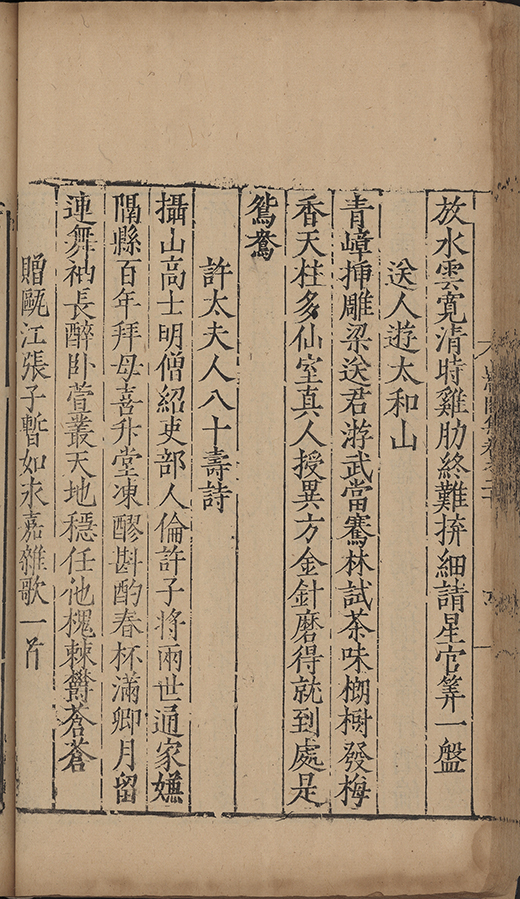 放水雲寬清時雞肋終難拚細請星官筭一盤
送人遊太和山
青嶂揷雕梁送君游武當騫林試茶味榔樹發梅
香天柱多仙室真人授異方金針磨得就到處是
鴛鴦
許太夫人八十壽詩
攝山高士明僧紹吏部人倫許子將兩世通家嫌
隔縣百年拜母喜升堂凍醪斟酌春杯滿卿月留
連舞袖長醉卧萱叢天地穩任他槐棘欝蒼蒼
贈甌江張子暫如永嘉雜歌一首